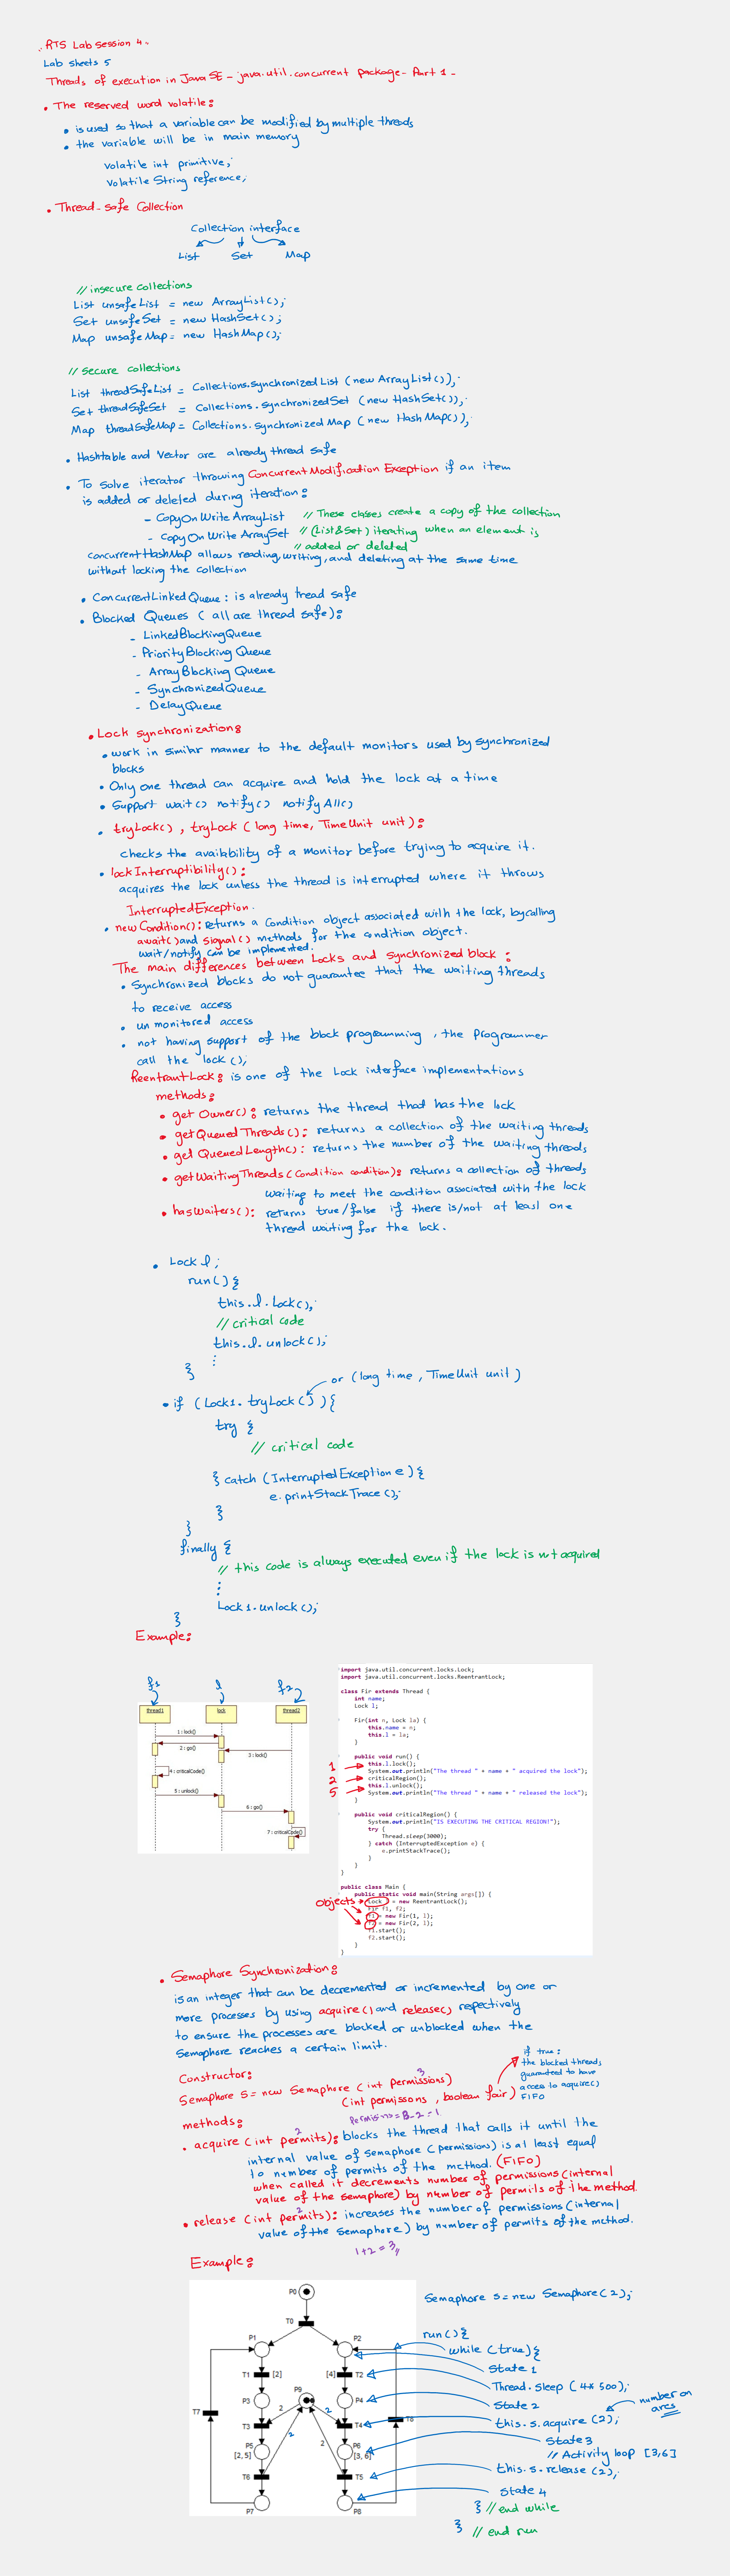 RTS Lab session 4
Lab sheets 5
Threads of execution in Java SE - java.util.concurrent package - Part 1 -
• The reserved word volatile:
• is used so that a variable can be modified by multiple threds
• the variable will be in main memory
volatile int primitive;
volatile String reference;
• Thread-safe Collection
Collection interface
List Set Map
// insecure collections
List unsafeList = new ArrayList();
Set unsafeSet = new HashSet();
Map unsafeMap = new HashMap();
// secure collections
List threadSafeList = Collections.synchronizedList (new ArrayList());
Set threadSafeSet = Collections.synchronizedSet (new HashSet());
Map threadSafeMap = Collections.synchronized Map (new HashMap());
• Hashtable and Vector are already thread safe
• To solve iterator throwing Concurrent Modification Exception if an item
is added or deleted during iteration:
- CopyOnWriteArrayList // These classes create a copy of the collection
- CopyOnWriteArraySet // (List&Set) iterating when an element is
// added or deleted
concurrentHashMap allows reading, writing, and deleting at the same time
without locking the collection
• ConcurrentLinkedQueue: is already tread safe
• Blocked Queues (all are thread safe):
- LinkedBlockingQueue
- PriorityBlocking Queue
- ArrayBlocking Queue
- SynchronizedQueue
- DelayQueue
• Lock synchronization:
• work in similar manner to the default monitors used by synchronized
blocks
• Only one thread can acquire and hold the lock at a time
• Support wait() notify() notifyAll()
• tryLock(), tryLock (long time, TimeUnit unit):
checks the availability of a monitor before trying to acquire it.
• lockInterruptibility():
acquires the lock unless the thread is interrupted where it throws
InterruptedException.
• newCondition(): returns a Condition object associated with the lock, by calling
await() and signal() methods for the condition object.
wait/notify can be implemented.
The main differences between Locks and synchronized block:
• Synchronized blocks do not guarantee that the waiting threads
to receive access
• un monitored access
• not having support of the block programming, the programmer
call the lock();
ReentrantLock: is one of the Lock interface implementations
methods:
• get Owner(): returns the thread that has the lock
• getQueuedThreads(): returns a collection of the waiting threads
• get QueuedLength(): returns the number of the waiting threads
• getWaitingThreads(Condition condition): returns a collection of threads
waiting to meet the condition associated with the lock
• hasWaiters(): returns true/false if there is/not at least one
thread waiting for the lock.
• Lock l;
run(){
this.l.lock();
// critical code
this.l.unlock();
⋮
}
or (long time, TimeUnit unit)
• if (Lock1.tryLock()){
try {
// critical code
} catch (InterruptedException e){
e.printStackTrace();
}
}
finally {
// this code is always executed even if the lock is not acquired
⋮
Lock1.unlock();
}
Example:
f1 l f2
thread1 lock thread2
1 : lock()
2 : go()
3 : lock()
4 : criticalCode()
5 : unlock()
6 : go()
7 : criticalCode()
import java.util.concurrent.locks.Lock;
import java.util.concurrent.locks.ReentrantLock;
class Fir extends Thread {
int name;
Lock l;
Fir(int n, Lock la) {
this.name = n;
this.l = la;
}
public void run() {
1 this.l.lock();
System.out.println("The thread " + name + " acquired the lock");
2 criticalRegion();
5 this.l.unlock();
System.out.println("The thread " + name + " released the lock");
}
public void criticalRegion() {
System.out.println("IS EXECUTING THE CRITICAL REGION!");
try {
Thread.sleep(3000);
} catch (InterruptedException e) {
e.printStackTrace();
}
}
}
public class Main {
public static void main(String args[]) {
Objects Lock l = new ReentrantLock();
Fir f1, f2;
f1 = new Fir(1, l);
f2 = new Fir(2, l);
f1.start();
f2.start();
}
}
• Semaphore Synchronization:
is an integer that can be decremented or incremented by one or
more processes by using acquire() and release() repectively
to ensure the processes are blocked or unblocked when the
Semaphore reaches a certain limit.
if true:
the blocked threads
guaranteed to have
access to acquire()
FIFO
Constructor:
3
Semaphore S = new Semaphore (int permissions)
(int permissons, boolean fair)
permissions = 3-2 = 1
methods:
2
• acquire (int permits): blocks the thread that calls it until the
internal value of semaphore (permissions) is at least equal
to number of permits of the method. (FIFO)
when called it decrements number of permissions (internal
value of the semaphore) by number of permits of the method.
2
• release (int permits): increases the number of permissions (internal
value of the Semaphore) by number of permits of the method.
1+2 = 3
Example:
P0
T0
P1 P2
T1 [2] [4] T2
P3 P9 P4
T7 T8
2 2
T3 T4
P5 P6
[2, 5] [3, 6]
2 2
T6 T5
P7 P8
Semaphore s = new Semaphore(2);
run(){
while (true){
State 1
Thread.sleep (4* 500);
State 2
number on
arcs
this.s.acquire (2);
State 3
// Activity loop [3,6]
this.s.release (2);
State 4
} // end while
} // end run